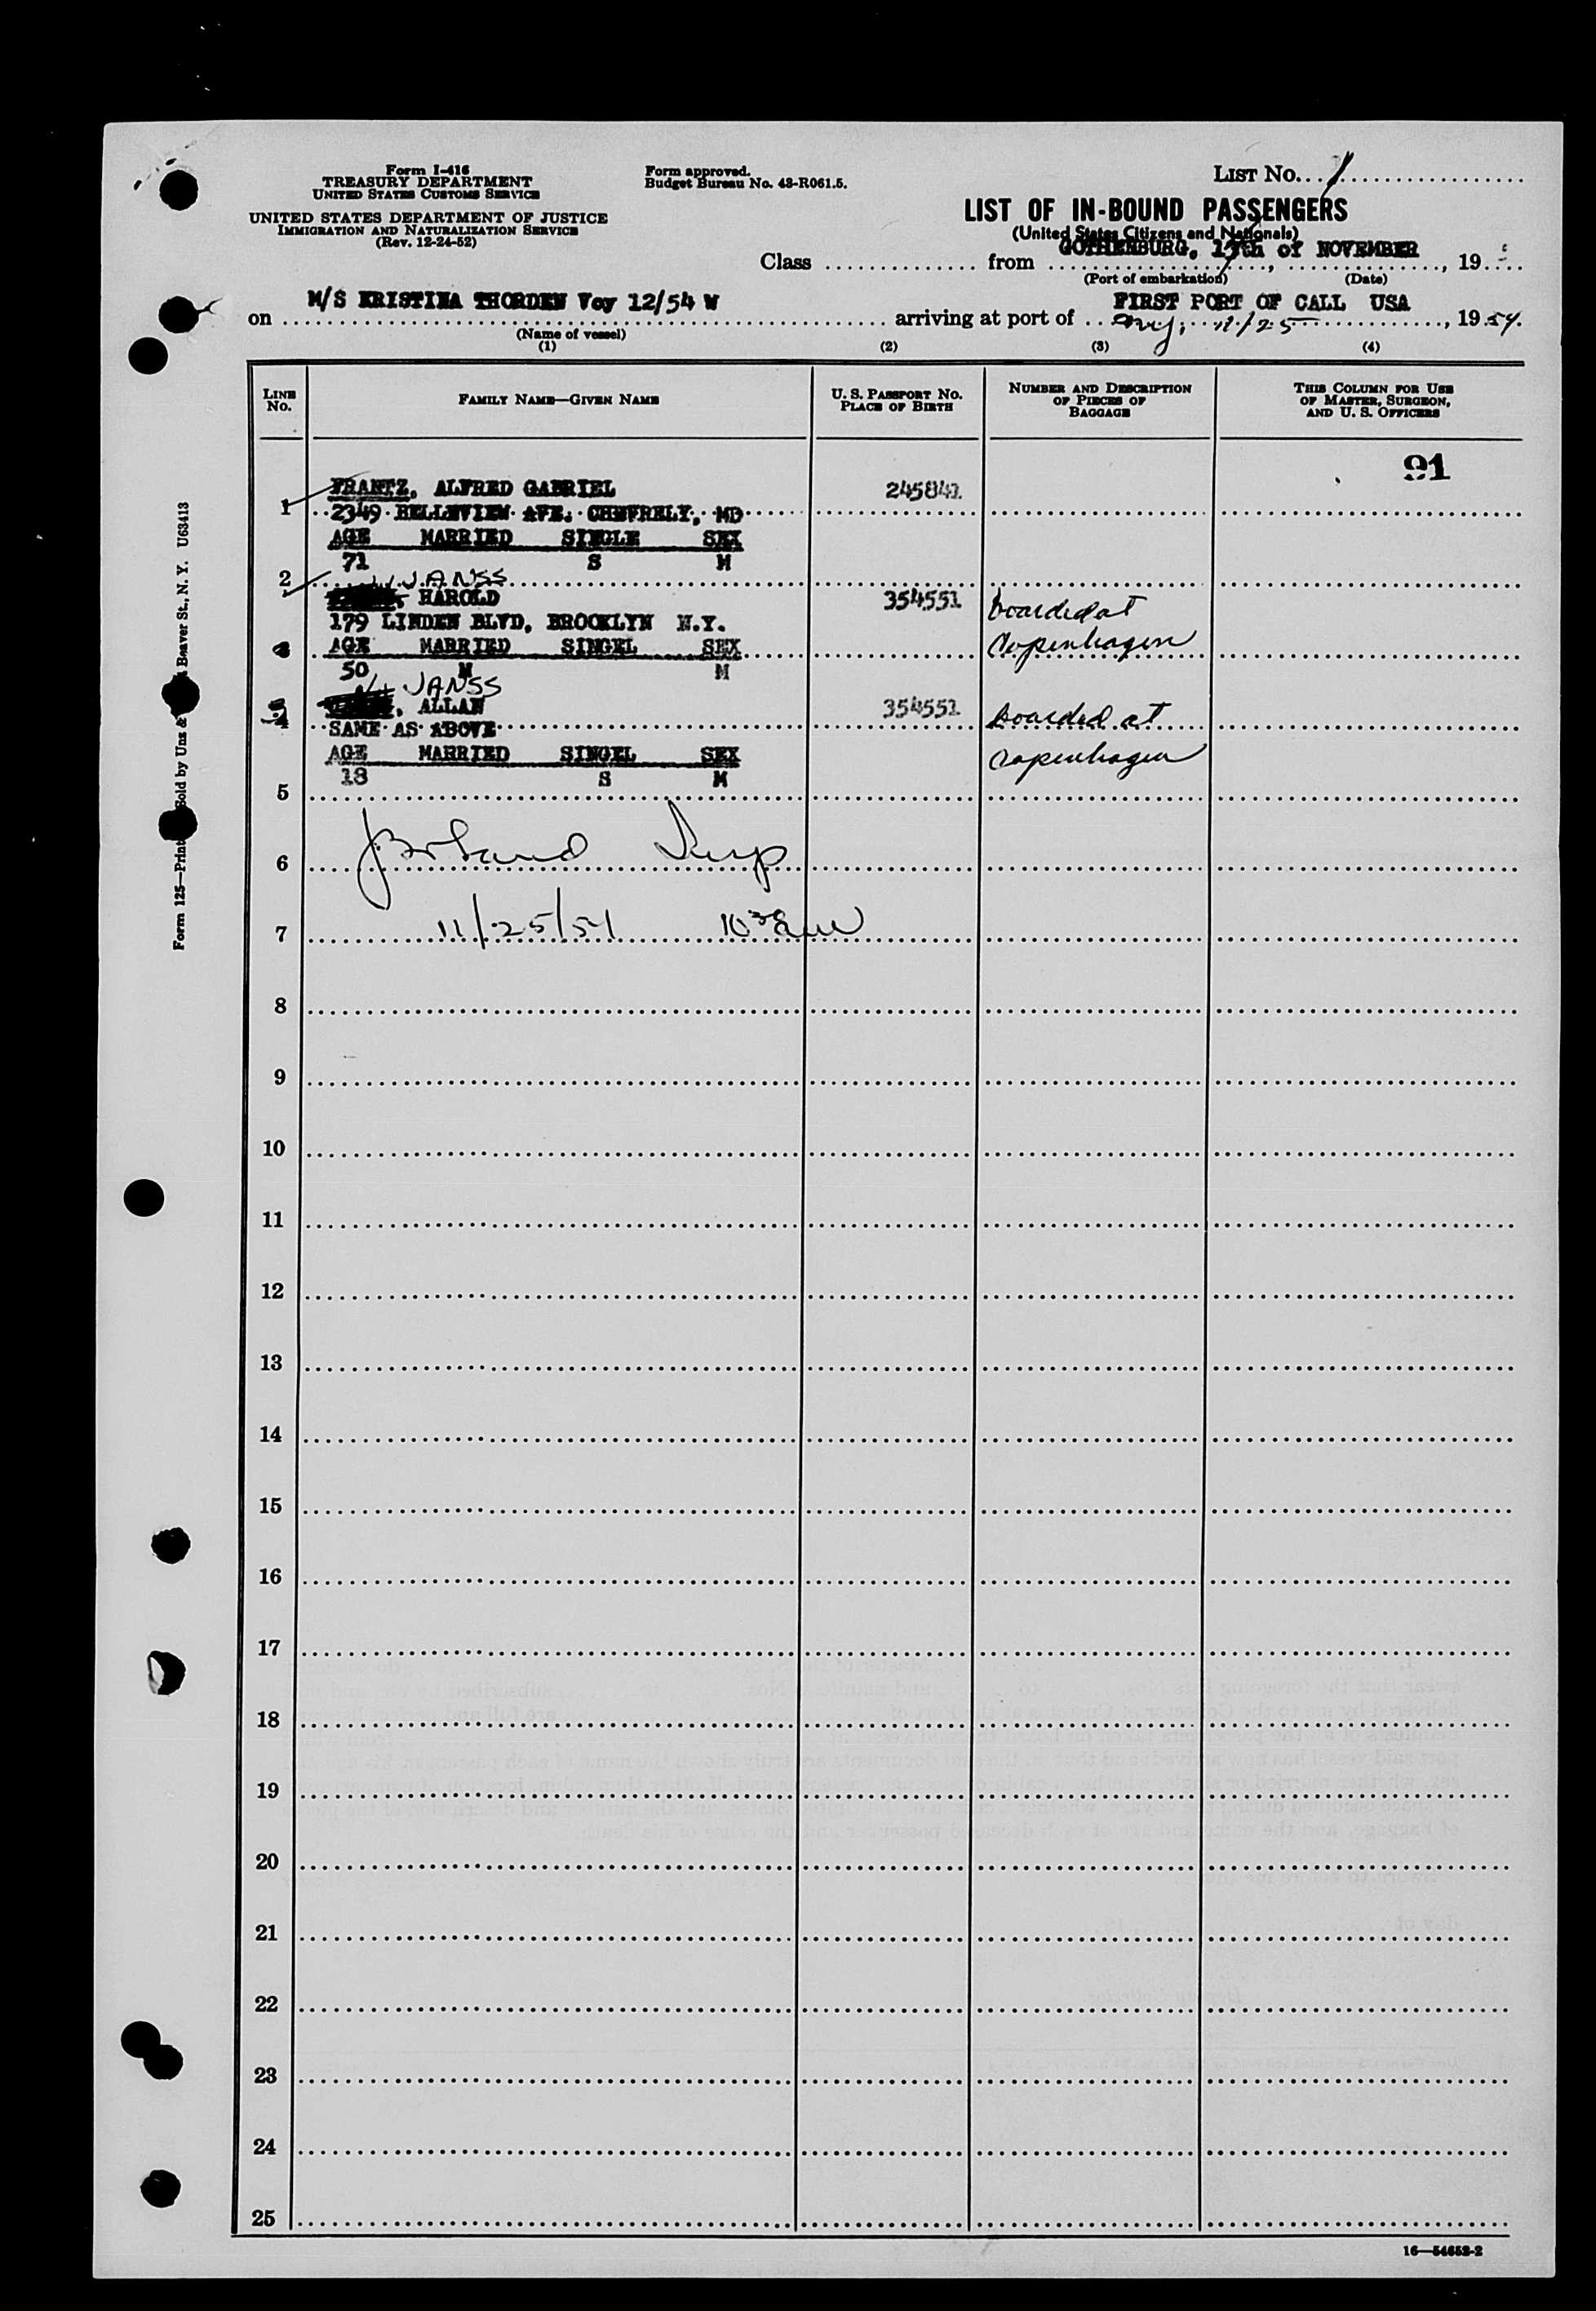 Form I-416
TREASURY DEPARTMENT
UNITED STATES CUSTOMS SERVICE
UNITED STATES DEPARTMENT OF JUSTICE
IMMIGRATION AND NATURALIZATION SERVICE
(Rev. 12-24-52)
Form approved.
Budget Bureau No. 43-R061.5.
LIST NO. 1
LIST OF IN-BOUND PASSENGERS
(United States Citizens and Nationals)
Class from GOTHENBURG, of NOVEMBER, 19
(Port of embarkation) (Date)
on M/S KRISTINA THORDEN Voy 12/54 W arriving at port of FIRST PORT OF CALL USA
11/25, 1954.
(Name of vessel)
(1) (2) (3) (4)
LINE No.
FAMILY NAME—GIVEN NAME
U. S. PASSPORT NO.
PLACE OF BIRTH
NUMBER AND DESCRIPTION
OF PIECES OF
BAGGAGE
THIS COLUMN FOR USE
OF MASTER, SURGEON,
AND U. S. OFFICERS
91
FRANTZ, ALFRED GABRIEL 245842
1 2349 BELLEVIEW AVE. CHEFRELY, MD
AGE MARRIED SINGLE SEX
71 S M
2 JANSS
HAROLD 354551 boarded at
179 LINDEN BLVD, BROOKLYN N.Y. Copenhagen
AGE MARRIED SINGEL SEX
50 M M
JANSS
3 , ALLAN 354552 boarded at
4 SAME AS ABOVE
AGE MARRIED SINGEL SEX Copenhagen
18 S M
5
6 Insp
7 11/25/54 10 30 am
8
9
10
11
12
13
14
15
16
17
18
19
20
21
22
23
24
25
16—54652-2
Form 125—Print Sold by Unz & Beaver St., N. Y. U63413